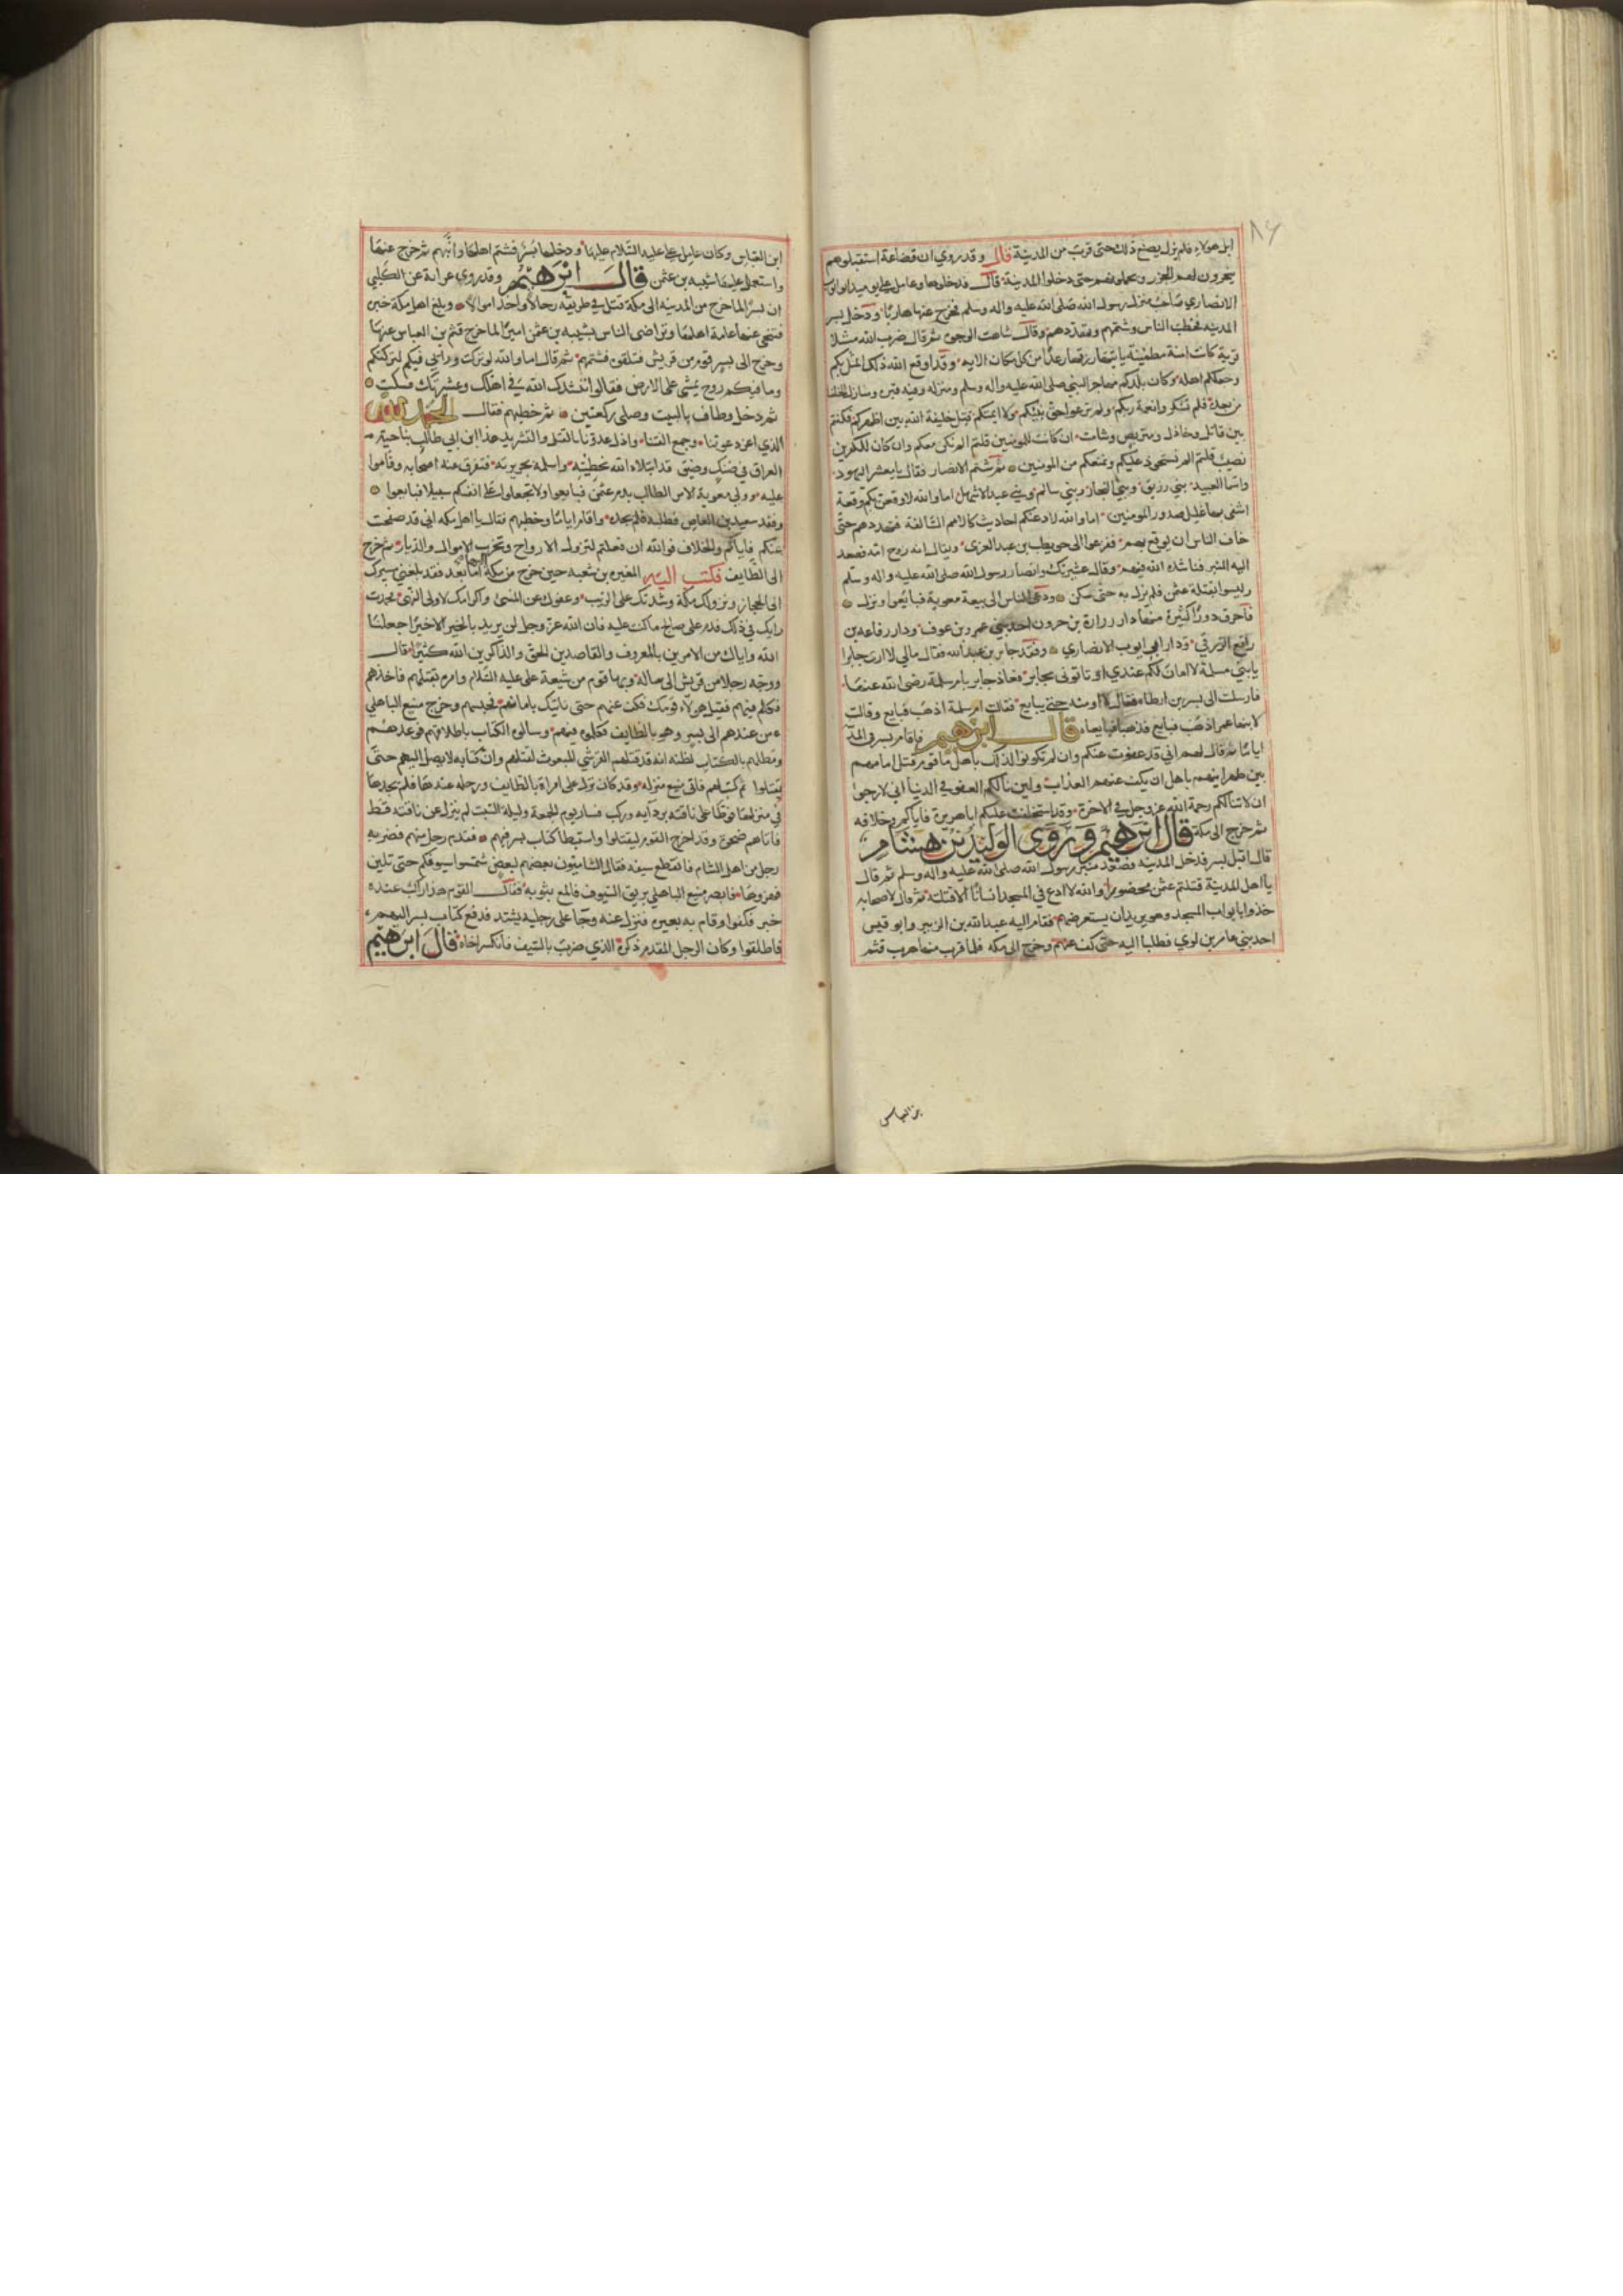 ٨٤
ابل هولاء فلم يزل يصنع ذلك حتى قرب من المدينة قال وقد روي ان قضاعة استقبلوهم
ينحرون لهم الجزر ويحملونهم حتى دخلوا المدينة قال فدخلوها وعامل علي يوميذ ابو ايوب
الانصاري صاحب منزل رسول الله صلى الله عليه واله وسلم فخرج عنها هاربا ودخل بسر
المدينه فخطب الناس وشتمهم وتهددهم وقال شاهت الوجوه ثم قال ضرب الله مثلا
قرية كانت امنة مطمئنة ياتيها رزقها رغدا من كل مكان الايه وقد اوقع الله ذلك المثل بكم
وجعلكم اهله وكان بلدكم مهاجر النبي صلى الله عليه واله وسلم ومنزله وفيه قبره ومنازل الخلفا
من بعده فلم تشكروا نعمة ربكم ولم ترعوا حق نبيكم وقتل خليفة الله بين اظهركم فكنتم
بين قاتل وخاذل ومتربص وشامت ان كانت للمومنين قلتم الم نكن معكم وان كان للكفرين
نصيب قلتم الم نستحوذ عليكم ونمنعكم من المومنين ثم شتم الانصار فقال يا معشر اليهود
وابنا العبيد بني رزيق وبني النجار وبني سالم وبني عبد الاشهل اما والله لاوقعن بكم وقعة
اشفي بها غليل صدور المومنين اما والله لادعنكم احاديث كالامم السالفة فتهددهم حتى
خاف الناس ان يوقع بهم ففزعوا الى حويطب بن عبد العزى ويقال انه زوج امه فصعد
اليه المنبر فناشده الله فيهم وقال عشيرتك وانصار رسول الله صلى الله عليه واله وسلم
وليسوا بقتلة عثمن فلم يزل به حتى سكن ودعى الناس الى بيعة معوية فبايعوا ونزل
فاحرق دورا كثيرة منها دار زرارة بن حرون احد بني عمرو بن عوف ودار رفاعه بن
رافع الزرقي ودار ابي ايوب الانصاري وفقد جابر بن عبد الله فقال مالي لا ارى جابرا
يا بني سلمة لا امان لكم عندي او تاتوني بجابر فعاذ جابر بام سلمة رضي الله عنها
فارسلت الى بسر بن ارطاه فقال لا اومنه حتى يبايع فقالت ام سلمة اذهب فبايع وقالت
لابنها عمر اذهب فبايع فذهبا فبايعاه قال ابرهيم فاقام بسر في المدينه
اياما ثم قال لهم اني قد عفوت عنكم وان لم تكونوا لذلك باهل ما قوم قتل امامهم
بين ظهرانيهم باهل ان يكف عنهم العذاب ولين نالكم العفو في الدنيا اني لارجوا
ان لا تنالكم رحمة الله عز وجل في الاخرة وقد استخلفت عليكم ابا هريرة فاياكم وخلافه
ثم خرج الى مكة قال ابرهيم وروى الوليد بن هشام
قال اقبل بسر فدخل المدينه فصعد منبر رسول الله صلى الله عليه واله وسلم ثم قال
يا اهل المدينة قتلتم عثمن محضوبا والله لا ادع في المسجد انسانا الا قتلته ثم قال لاصحابه
خذوا بابواب المسجد وهو يريد ان يستعرضهم فقام اليه عبد الله بن الزبير وابو قيس
احد بني عامر بن لوي فطلبا اليه حتى كف عنهم وخرج الى مكه فلما قرب منها هرب قثم
بن العباس
ابن العباس وكان عامل علي عليه السلام عليها ودخلها بسر فشتم اهلها وانبهم ثم خرج عنها
واستعمل عليها شيبه بن عثمن قال ابرهيم وقد روى عوانة عن الكلبي
ان بسرا لما خرج من المدينه الى مكة قتل في طريقه رجالا واخذ اموالا وبلغ اهل مكة خبره
فتنحى عنها عامة اهلها وتراضى الناس بشيبه بن عثمن اميرا لما خرج قثم بن العباس عنها
وخرج الى بسر قوم من قريش فتلقوه فشتمهم ثم قال اما والله لو تركت ورايي فيكم لتركتكم
وما فيكم روح يمشي على الارض فقالوا ننشدك الله في اهلك وعشيرتك فسكت
ثم دخل وطاف بالبيت وصلى ركعتين ثم خطبهم فقال الحمد لله
الذي اعز دعوتنا وجمع الفتنا واذل عدونا بالقتل والتشريد هذا ابن ابي طالب بناحية
العراق في ضنك وضيق قد ابتلاه الله بخطيته واسلمه بجريرته فتفرق عنه اصحابه وقاموا
عليه وولي معوية الامر الطالب بدم عثمن فبايعوا ولا تجعلوا على انفسكم سبيلا فبايعوا
وفقد سعيد بن العاص فطلبه فلم يجده واقام اياما وخطبهم فقال يا اهل مكه اني قد صفحت
عنكم فاياكم والخلاف فوالله ان فعلتم لتزول الارواح وتخرب الاموال والديار ثم خرج
الى الطايف فكتب اليه المغيره بن شعبه حين خرج من مكة اما بعد فقد بلغني مسيرك
الى الحجاز ونزولك مكة وشدتك على الريب وعفوك عن المسئ واكرامك لاولي النهى فحمدت
رايك في ذلك فدم على صالح ما كنت عليه فان الله عز وجل لن يريد بالخير الا خيرا جعلنا
الله واياك من الامرين بالمعروف والقاصدين للحق والذاكرين الله كثيرا قال
ووجه رجلا من قريش الى تباله وبها قوم من شيعة علي عليه السلام وامره بقتلهم فاخذهم
فكلم فيهم فقيل هولاء قومك فكف عنهم حتى ناتيك بامانهم فحبسهم وخرج منيع الباهلي
من عندهم الى بسر وهو بالطايف فكلموه فيهم وسالوه الكتاب باطلاقهم فوعدهم
ومطلهم بالكتاب لظنه انه قد قتلهم القرشي المبعوث لقتلهم وان كتابه لا يصل اليهم حتى
يقتلوا ثم كتب لهم فاتى منيع منزله وقد كان نزل على امراة بالطايف ورحله عندها فلم يجدها
في منزلها فوطا على ناقته بردايه وركب فسار يوم الجمعة وليلة السبت لم ينزل عن ناقته قط
فاتاهم ضحوة وقد اخرج القوم ليقتلوا واستبطا كتاب بسر فيهم فقدم رجل منهم فضربه
رجل من اهل الشام فانقطع سيفه فقال الشاميون بعضهم لبعض شمسوا سيوفكم حتى تلين
فهزوها فابصر منيع الباهلي بريق السيوف فالمع بثوبه فقال القوم هذا راكب عنده
خبر فكفوا وقام به بعيره فنزل عنه وجا على رجليه يشتد فدفع كتاب بسر اليهم
فاطلقوا وكان الرجل المقدم ذكره الذي ضرب بالسيف فانكسر اخاه قال ابرهيم